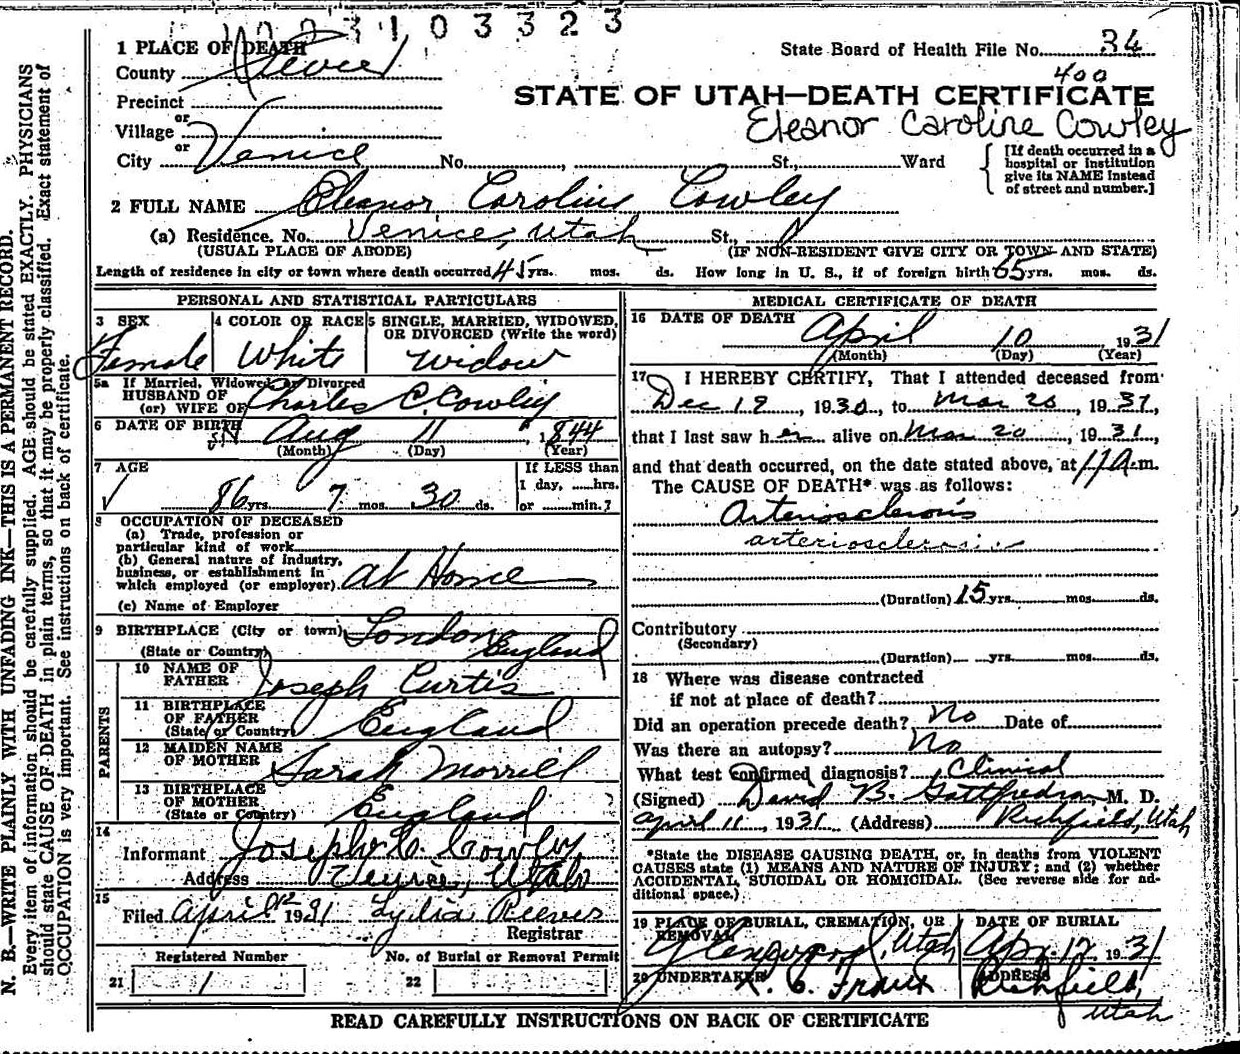 3103323
1 PLACE OF DEATH
State Board of Health File No. 34
County Sevier
400
Precinct
STATE OF UTAH—DEATH CERTIFICATE
or
Village
Eleanor Caroline Cowley
or
City Venice No. , St., Ward
[If death occurred in a hospital or institution give its NAME instead of street and number.]
2 FULL NAME Eleanor Caroline Cowley
(a) Residence. No. Venice, Utah St.,
(USUAL PLACE OF ABODE) (IF NON-RESIDENT GIVE CITY OR TOWN AND STATE)
Length of residence in city or town where death occurred 45 yrs. mos. ds. How long in U. S., if of foreign birth 65 yrs. mos. ds.
PERSONAL AND STATISTICAL PARTICULARS
3 SEX 4 COLOR OR RACE 5 SINGLE, MARRIED, WIDOWED, OR DIVORCED (Write the word)
Female White Widow
5a If Married, Widowed or Divorced
HUSBAND OF
(or) WIFE OF Charles C. Cowley
6 DATE OF BIRTH Aug 11, 1844
(Month) (Day) (Year)
7 AGE If LESS than
1 day, hrs.
86 yrs. 7 mos. 30 ds. or min.?
8 OCCUPATION OF DECEASED
(a) Trade, profession or
particular kind of work
(b) General nature of industry,
business, or establishment in
which employed (or employer) At Home
(c) Name of Employer
9 BIRTHPLACE (City or town) London
(State or Country) England
PARENTS
10 NAME OF
FATHER Joseph Curtis
11 BIRTHPLACE
OF FATHER
(State or Country) England
12 MAIDEN NAME
OF MOTHER Sarah Morrill
13 BIRTHPLACE
OF MOTHER
(State or Country) England
14
Informant Joseph C. Cowley
Address Venice, Utah
15
Filed April 12 1931 Lydia Reeves
Registrar
Registered Number No. of Burial or Removal Permit
21 1 22
MEDICAL CERTIFICATE OF DEATH
16 DATE OF DEATH
April 10 1931
(Month) (Day) (Year)
17 I HEREBY CERTIFY, That I attended deceased from
Dec 19, 1930, to Mar 20, 1931,
that I last saw her alive on Mar 20, 1931,
and that death occurred, on the date stated above, at 11 A.m.
The CAUSE OF DEATH* was as follows:
Arteriosclerosis
arteriosclerosis
(Duration) 15 yrs. mos. ds.
Contributory
(Secondary)
(Duration) yrs. mos. ds.
18 Where was disease contracted
if not at place of death?
Did an operation precede death? No Date of
Was there an autopsy? No
What test confirmed diagnosis? Clinical
(Signed) David B. Gottfredson M. D.
April 11, 1931 (Address) Richfield, Utah
*State the DISEASE CAUSING DEATH, or, in deaths from VIOLENT
CAUSES state (1) MEANS AND NATURE OF INJURY; and (2) whether
ACCIDENTAL, SUICIDAL OR HOMICIDAL. (See reverse side for ad-
ditional space.)
19 PLACE OF BURIAL, CREMATION, OR REMOVAL DATE OF BURIAL
Glenwood, Utah Apr. 12 1931
20 UNDERTAKER ADDRESS
Richfield,
Utah
READ CAREFULLY INSTRUCTIONS ON BACK OF CERTIFICATE
N. B.—WRITE PLAINLY WITH UNFADING INK—THIS IS A PERMANENT RECORD.
Every item of information should be carefully supplied. AGE should be stated EXACTLY. PHYSICIANS
should state CAUSE OF DEATH in plain terms, so that it may be properly classified. Exact statement of
OCCUPATION is very important. See instructions on back of certificate.